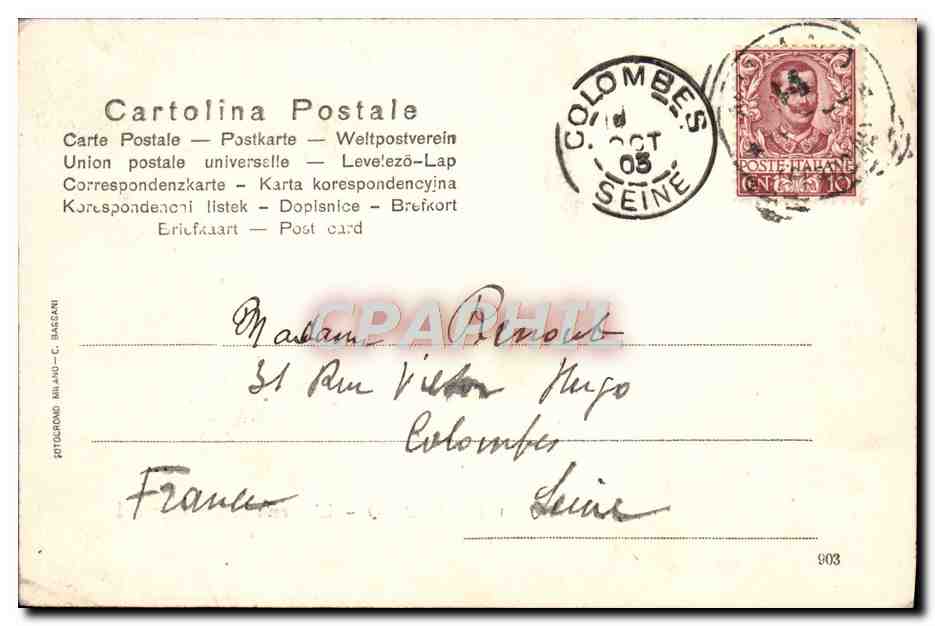 Cartolina Postale
Carte Postale — Postkarte — Weltpostverein
Union postale universelle — Levelező-Lap
Correspondenzkarte - Karta korespondencyjna
Korespondencni listek - Dopisnice - Brefkort
Briefkaart — Post card
COLOMBES
OCT
03
SEINE
POSTE ITALIANE
CN 10
FOTOCROMO MILANO — C. BASSANI
CPAPHIL
Madame
31 Rue Victor Hugo
Colombes
France
Seine
903